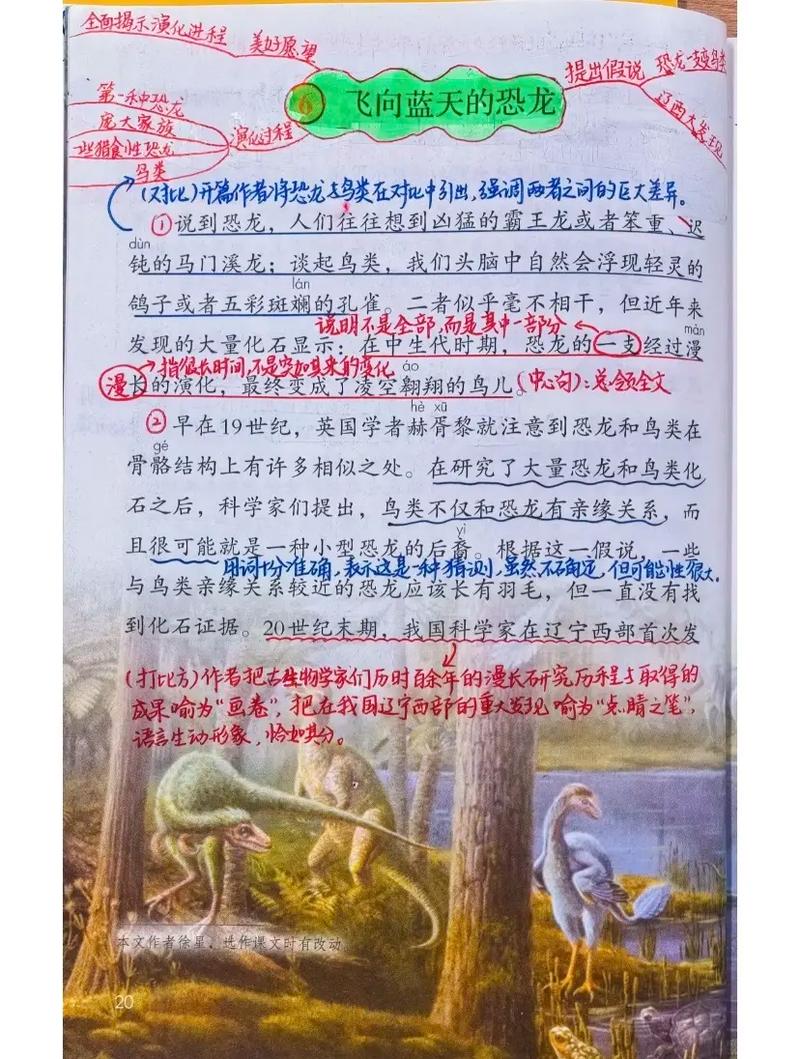 全面揭示演化进程
美好愿望
提出假说
恐龙→变鸟类
辽西大发现
第一种恐龙
庞大家族
一些猎食性恐龙
鸟类
演化过程
6 飞向蓝天的恐龙
(对比)开篇作者将恐龙与鸟类在对比中引出,强调两者之间的巨大差异。
①说到恐龙,人们往往想到凶猛的霸王龙或者笨重、迟
dùn
钝的马门溪龙;谈起鸟类,我们头脑中自然会浮现轻灵的
lán
鸽子或者五彩斑斓的孔雀。二者似乎毫不相干,但近年来
说明不是全部,而是其中一部分
màn
发现的大量化石显示:在中生代时期,恐龙的一支经过漫
指很长时间,不是突如其来的变化
áo
漫长的演化,最终变成了凌空翱翔的鸟儿。(中心句):总领全文
hè xū
②早在19世纪,英国学者赫胥黎就注意到恐龙和鸟类在
gé
骨骼结构上有许多相似之处。在研究了大量恐龙和鸟类化
石之后,科学家们提出,鸟类不仅和恐龙有亲缘关系,而
yì
且很可能就是一种小型恐龙的后裔。根据这一假说,一些
用词十分准确,表示这是一种猜测,虽然不确定,但可能性很大。
与鸟类亲缘关系较近的恐龙应该长有羽毛,但一直没有找
到化石证据。20世纪末期,我国科学家在辽宁西部首次发
(打比方)作者把古生物学家们历时百余年的漫长研究历程与取得的
成果喻为“画卷”,把在我国辽宁西部的重大发现喻为“点睛之笔”,
语言生动形象,恰如其分。
本文作者徐星,选作课文时有改动。
20